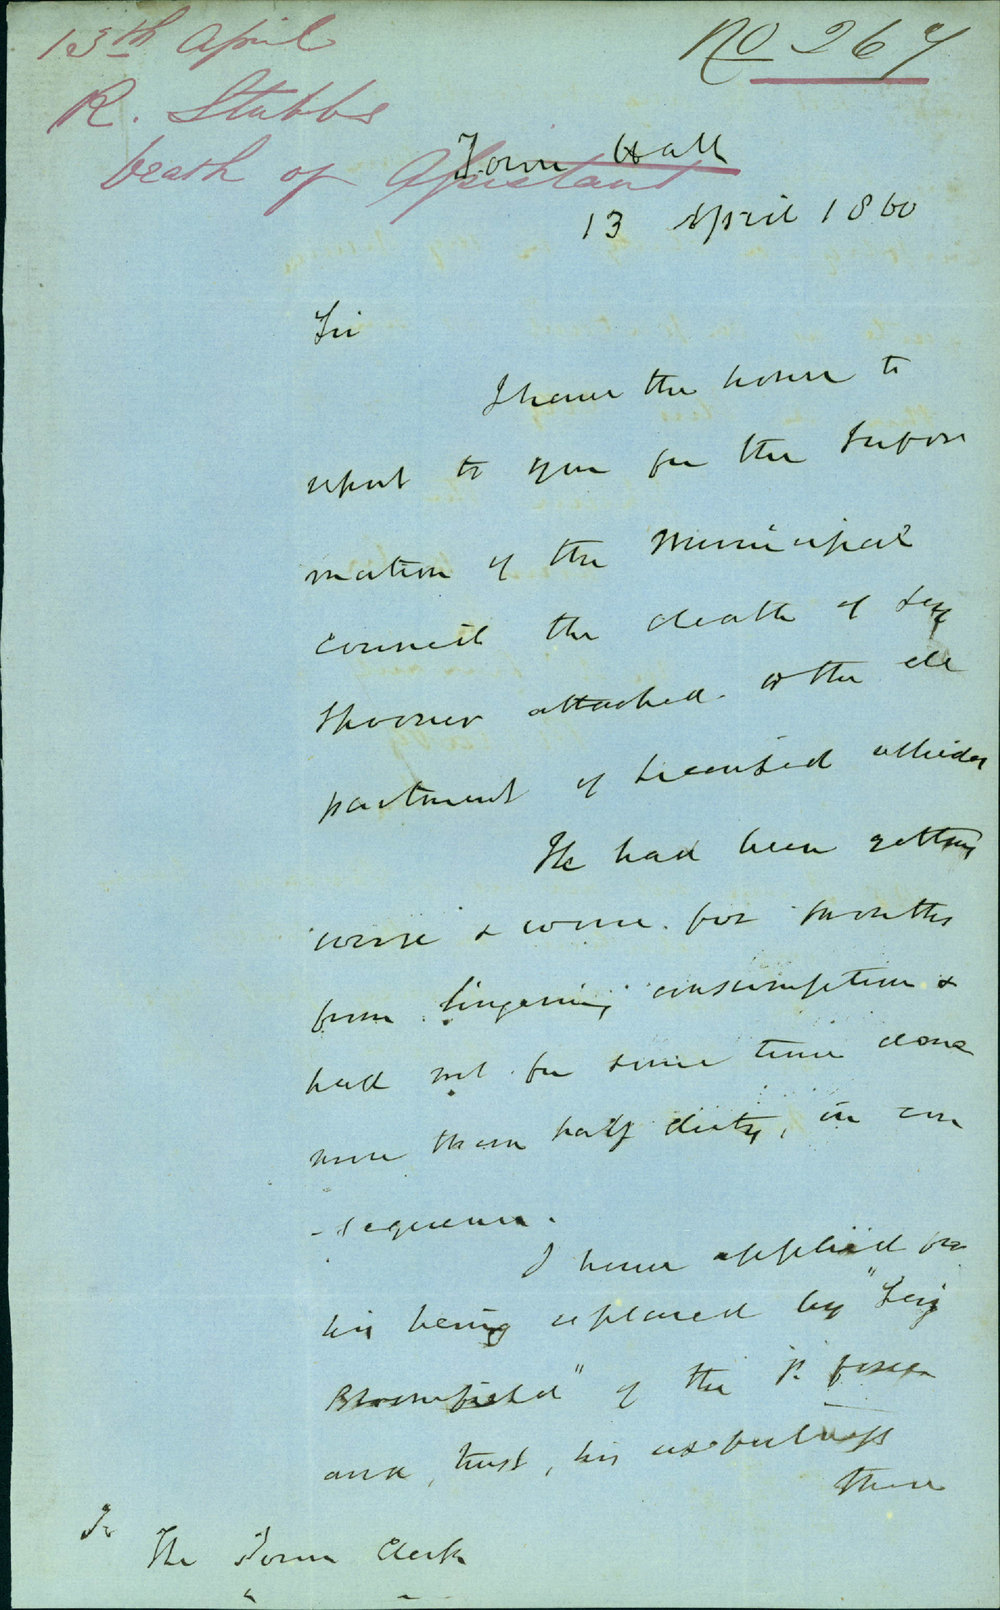 13th April
No 267
R. Stubbs
Death of Assistant
Town Hall
13 April 1860
Sir
I have the honor to
report to you for the Infor
mation of the Municipal
Council the death of Serg
Spooner attached to the de
partment of Licensed vehicles
He had been getting
worse & worse for months
from lingering consumption &
had not for some time done
more than half duty, in con
-sequence.
I have applied for
his being replaced by "Serg
Bloomfield" of the P. force
and, trust, his usefulness
there
To
The Town Clerk